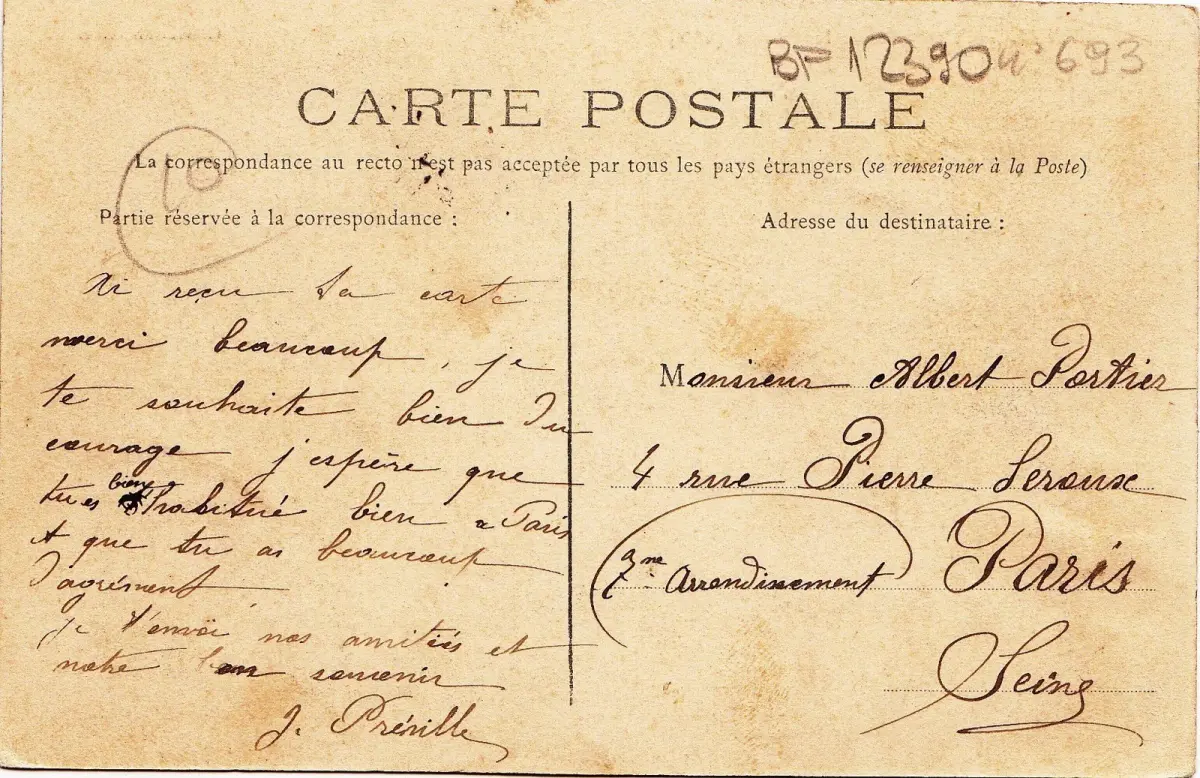 BF 12390 n° 693
CARTE POSTALE
La correspondance au recto n'est pas acceptée par tous les pays étrangers (se renseigner à la Poste)
10
Partie réservée à la correspondance :
Ai reçu ta carte
merci beaucoup, je
te souhaite bien du
courage j'espère que
tu es bien habitué bien a Paris
et que tu as beaucoup
d'agrément
Je t'envoi nos amitiés et
notre bon souvenir
J. Préville
Adresse du destinataire :
Monsieur Albert Portier
4 rue Pierre Leroux
7me Arrondissement Paris
Seine